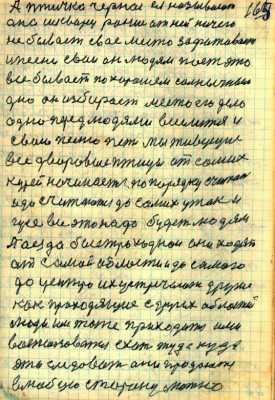 А птичка черная ел называют 165
она шкварн расше от ней ничего
не бывает свае место зафатавает
и песни сваи он людям поет это
все бывает по харошем солнычном
дню он избирает место его дело
одно перед людями веелится и
сваи песни петь мы живущие
все дваровые птицы от самих
курей начинает по порядку считат
и до считают до самих уток и
гусе вы это надо будет людям
Паезда быстроходном они ходят
от самой области и до самого
до центру их устричают другие
как проходящие с других областей
люди им тоже приходять ими
восто ехат туда куда
это следовать они продают
в любую сторану можно